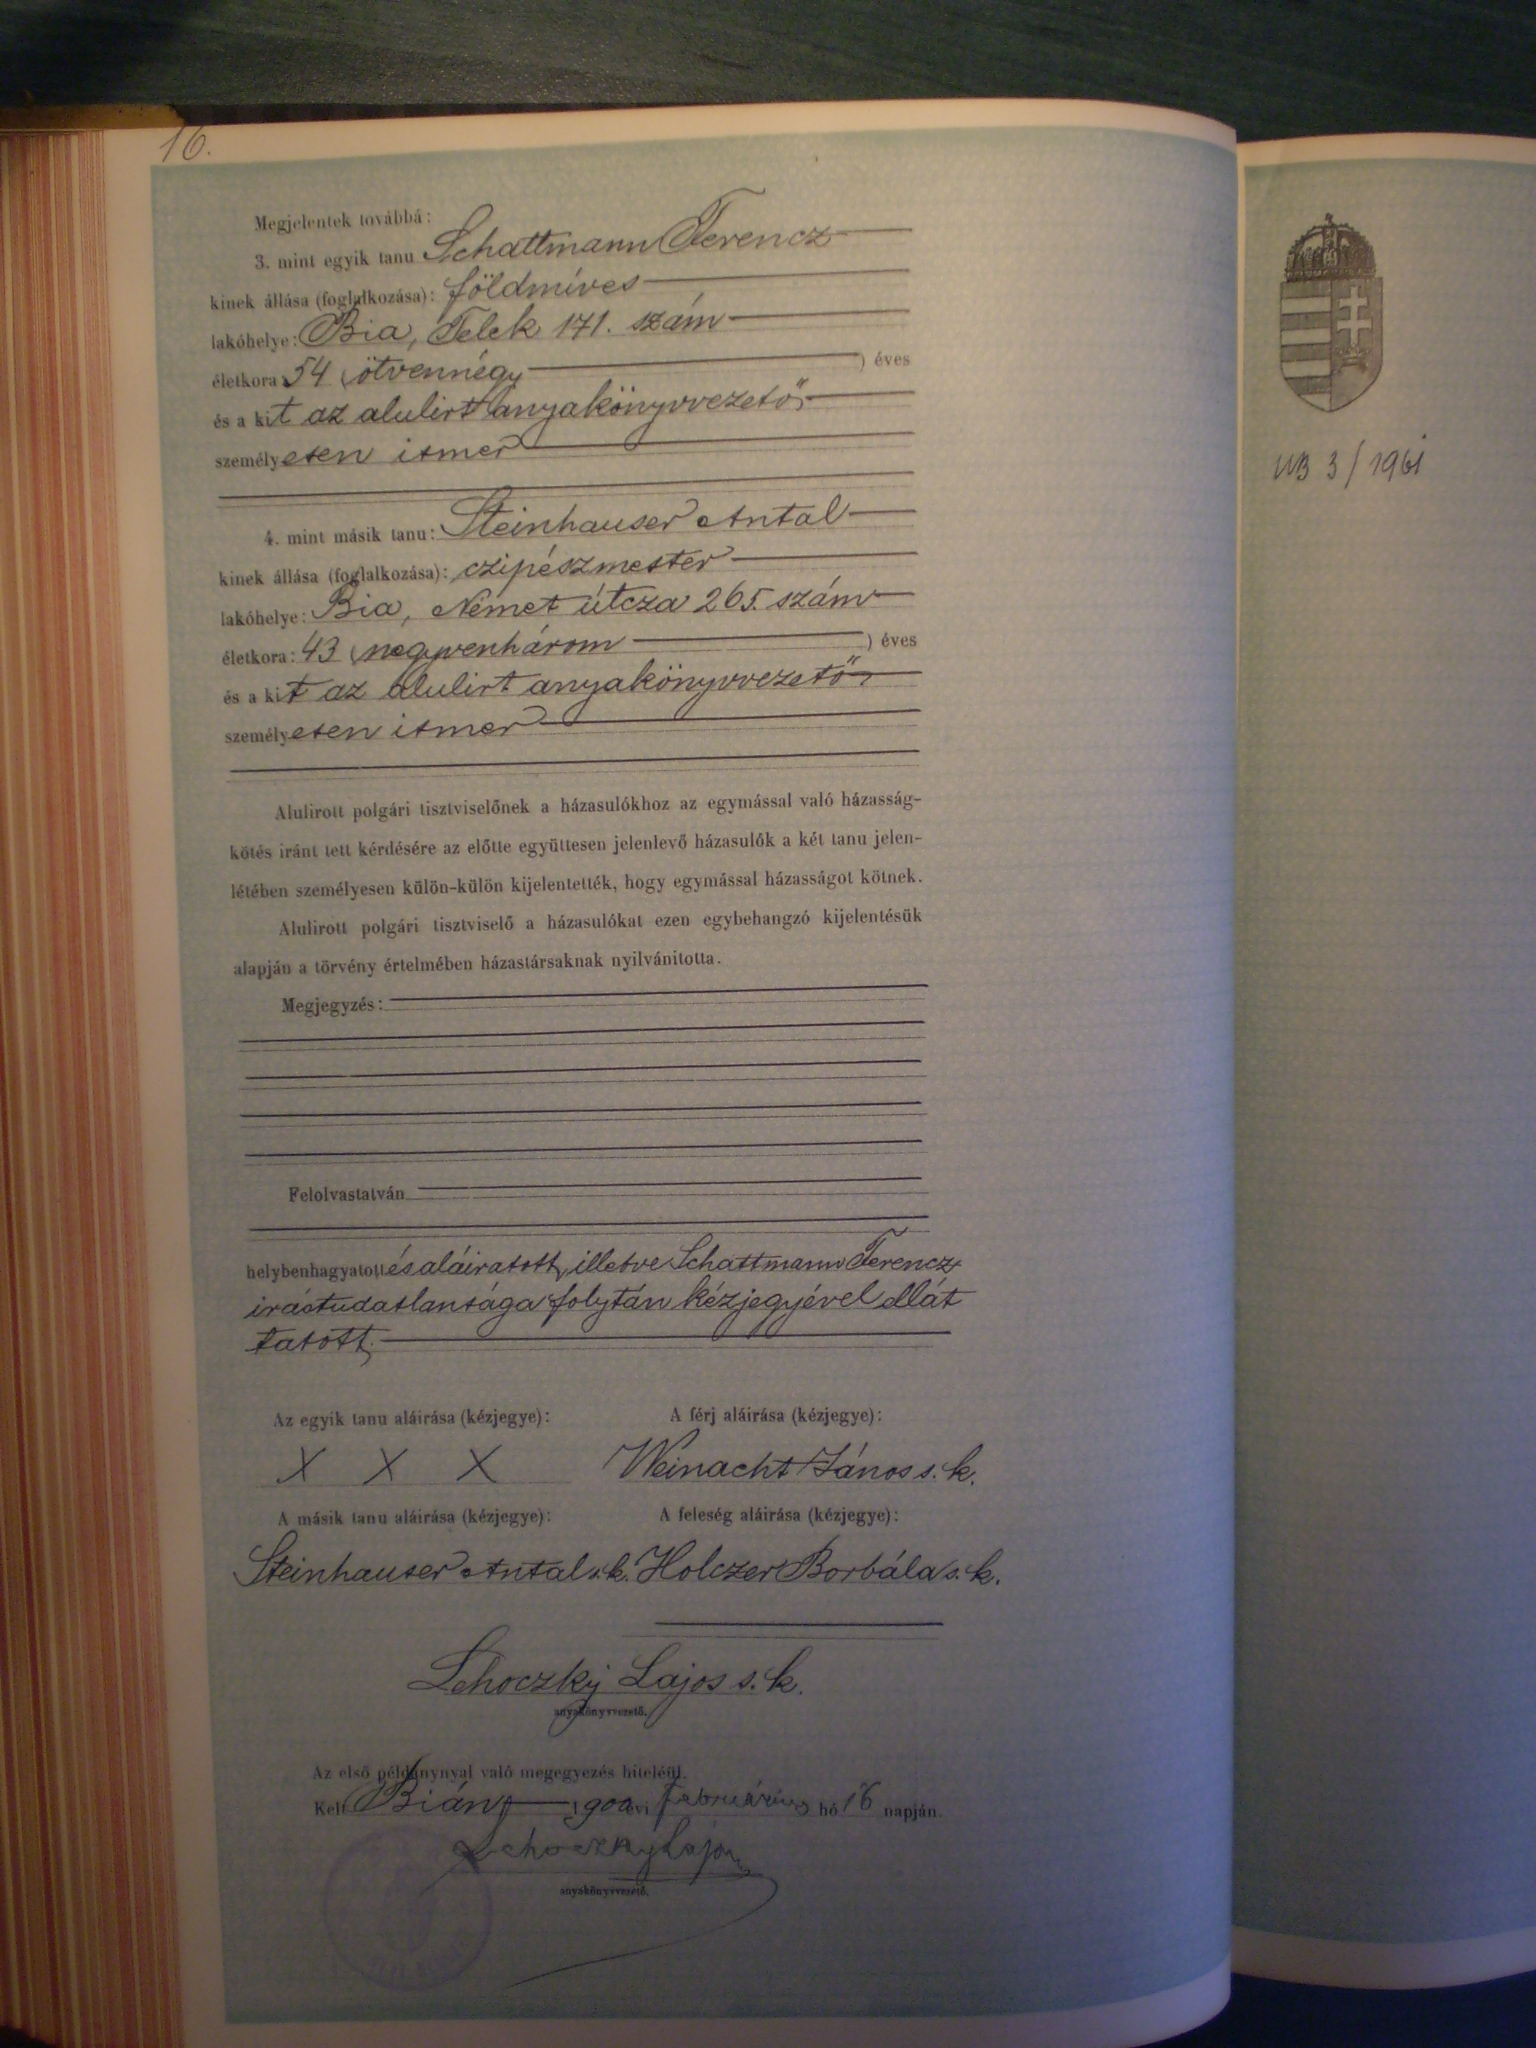 16.
Megjelentek továbbá:
3. mint egyik tanu Schattmann Ferencz
kinek állása (foglalkozása): földmíves
lakóhelye: Bia, Telek 171. szám
életkora: 54 (ötvennégy ) éves
és a kit az alulirt anyakönyvvezető
személyesen ismer
4. mint másik tanu: Steinhauser Antal
kinek állása (foglalkozása): czipészmester
lakóhelye: Bia, Német útcza 265. szám
életkora: 43 (negyvenhárom ) éves
és a kit az alulirt anyakönyvvezető
személyesen ismer
Alulirott polgári tisztviselőnek a házasulókhoz az egymással való házasság-
kötés iránt tett kérdésére az előtte együttesen jelenlevő házasulók a két tanu jelen-
létében személyesen külön-külön kijelentették, hogy egymással házasságot kötnek.
Alulirott polgári tisztviselő a házasulókat ezen egybehangzó kijelentésük
alapján a törvény értelmében házastársaknak nyilvánitotta.
Megjegyzés:
Felolvastatván
helybenhagyatott és aláiratott, illetve Schattmann Ferencz
irástudatlansága folytán kézjegyével ellát
tatott.
Az egyik tanu aláirása (kézjegye): A férj aláirása (kézjegye):
X X X Weinacht János s. k.
A másik tanu aláirása (kézjegye): A feleség aláirása (kézjegye):
Steinhauser Antal s. k. Holczer Borbála s. k.
Lehoczky Lajos s. k.
anyakönyvvezető.
Az első példánynyal való megegyezés hiteléül.
Kelt Bián, 1900 évi február hó 16 napján.
Lehoczky Lajos
anyakönyvvezető.
UB 3/1961